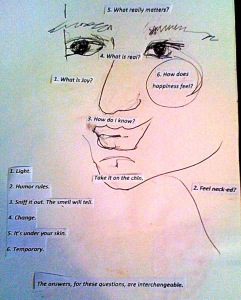 5. What really matters?
4. What is real?
1. What is Joy?
6. How does
happiness feel?
3. How do I know?
Take it on the chin.
2. Feel neck-ed?
1. Light.
2. Humor rules.
3. Sniff it out. The smell will tell.
4. Change.
5. It's under your skin.
6. Temporary.
The answers, for these questions, are interchangeable.